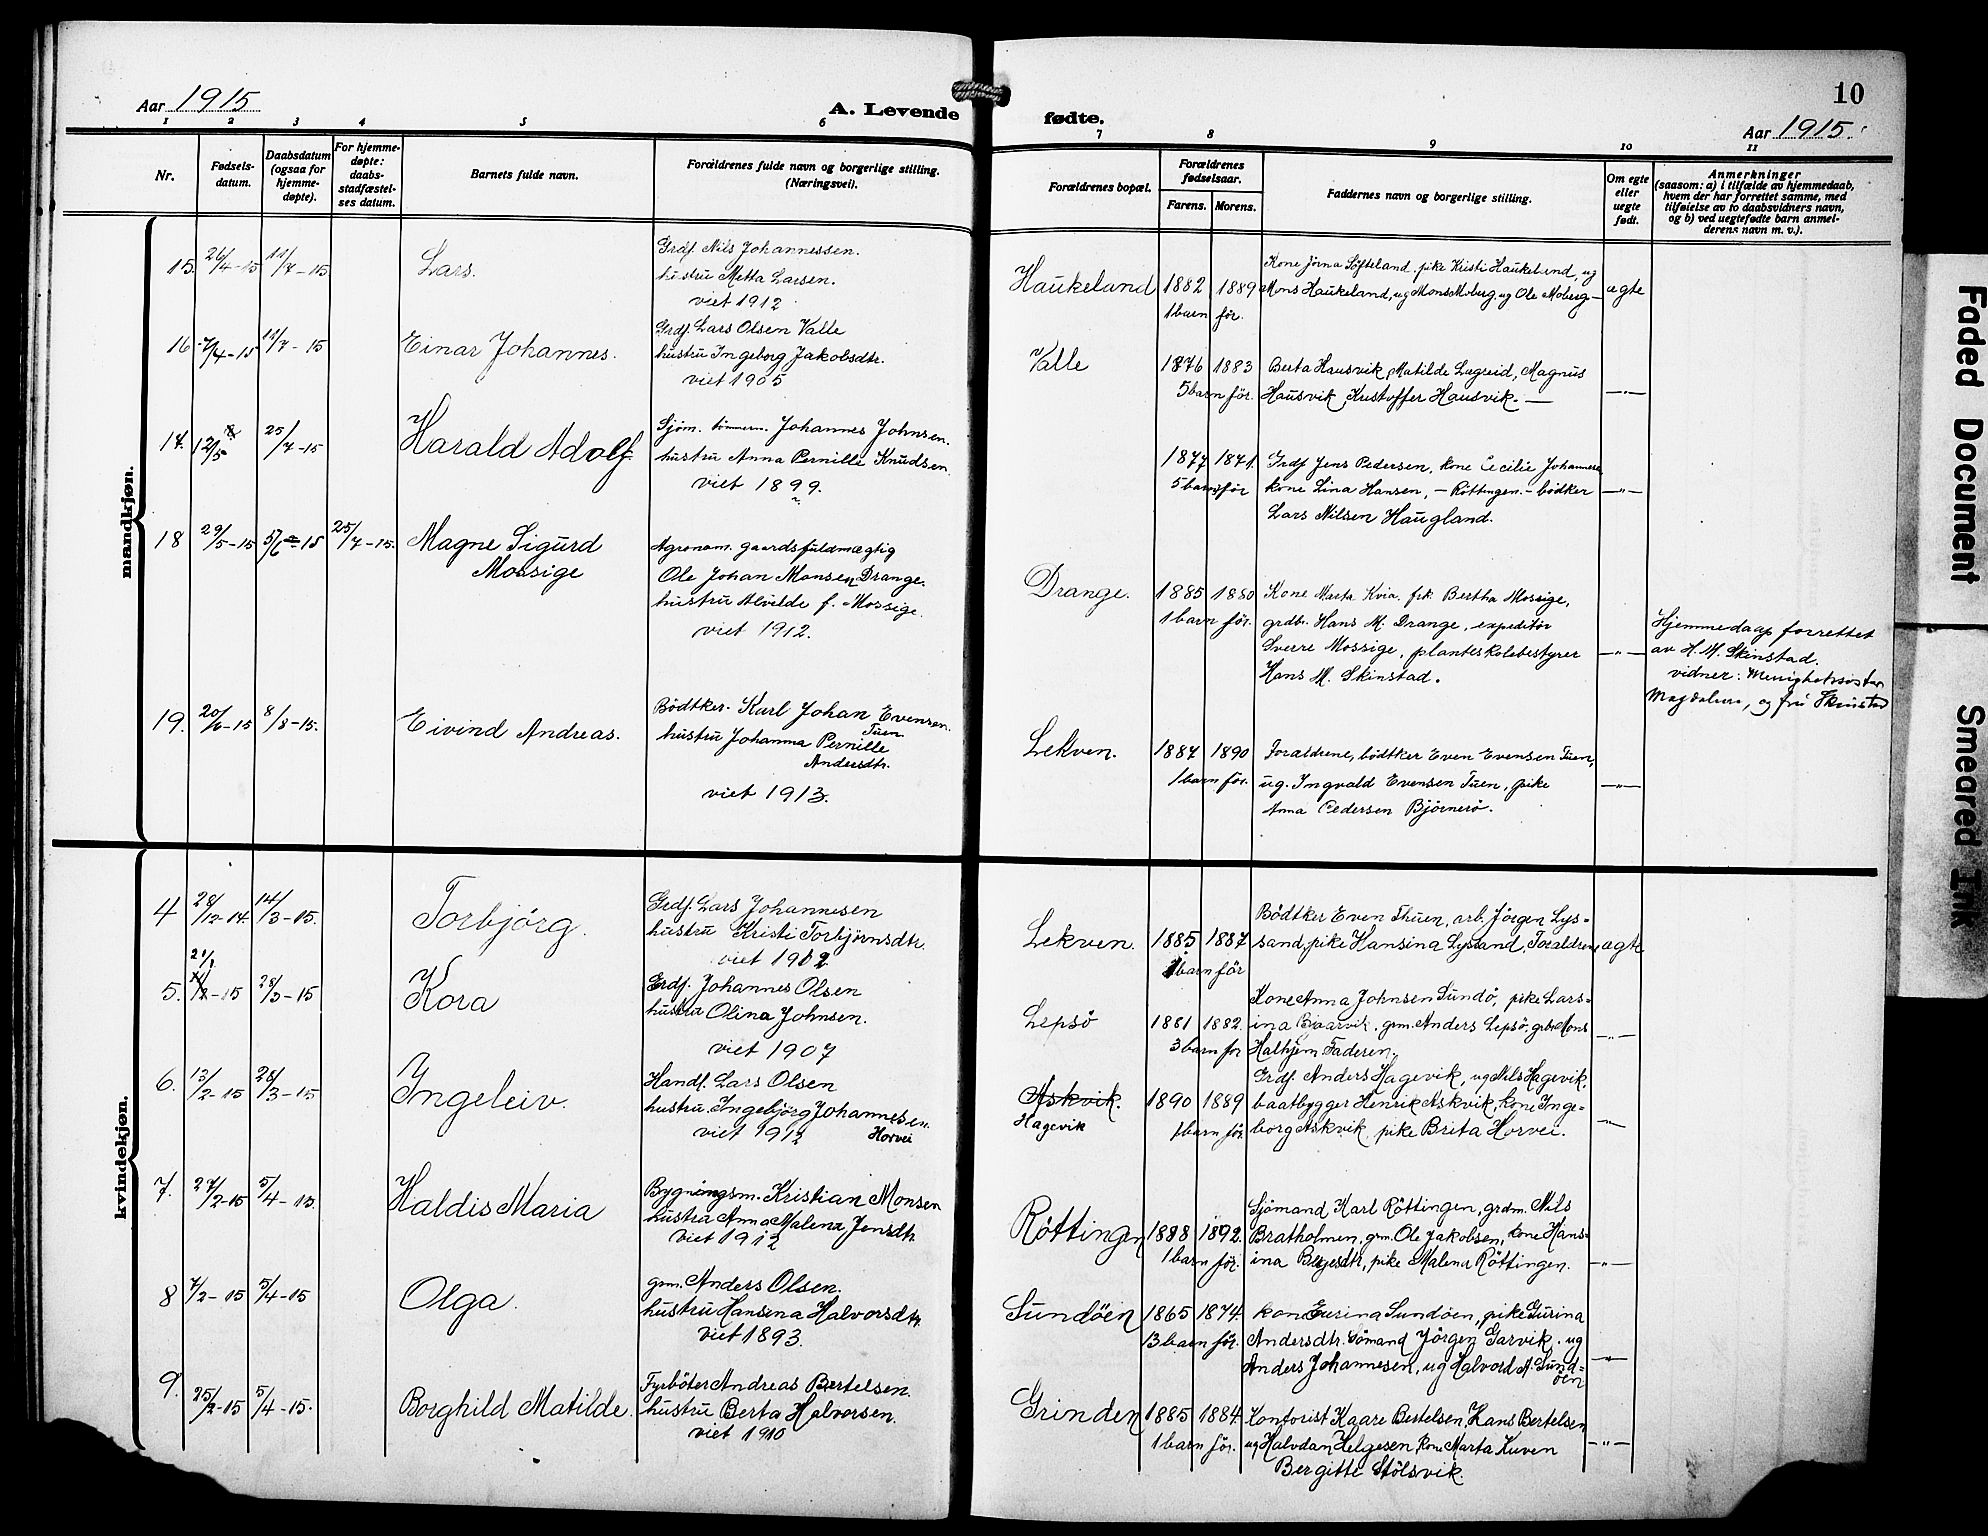 Aar 1915
A. Levende
1 2 3 4 5 6
Nr.
Fødsels-
datum.
Daabsdatum
(ogsaa for
hjemme-
døpte).
For hjemme-
døpte:
daabs-
stadfæstel-
ses datum.
Barnets fulde navn.
Forældrenes fulde navn og borgerlige stilling.
(Næringsvei).
mandkjøn.
15. 26/4-15 11/7-15 Lars.
Grdf. Nils Johannessen.
hustru Metta Larsen.
viet 1912
16 7/4-15 11/7-15 Einar Johannes.
Grdf. Lars Olsen Valle
hustru Ingeborg Jakobsdtr.
viet 1905
17. 12/5 25/7-15 Harald Adolf
Sjøm. tømmerm. Johannes Johnsen.
hustru Anna Pernille Knudsen
viet 1899.
18 29/5-15 5/6-15 25/7-15. Magne Sigurd
Mossige
Agronom. gaardsfuldmægtig
Ole Johan Monsen Drange.
hustru Alvilde f. Mossige.
viet 1912.
19. 20/6-15 8/8-15. Eivind Andreas.
Bödtker. Karl Johan Evensen
Tuen.
hustru Johanna Pernille
Andersdtr.
viet 1913.
kvindekjøn.
4 28/12-14. 14/3-15. Torbjörg.
Grdf. Lars Johannesen
hustru Kristi Torbjörnsdtr.
viet 1912
5. 21/1 -15 28/3-15 Kora
Grdf. Johannes Olsen
hustru Olina Johnsen.
viet 1907
6. 13/2-15 28/3-15 Ingeleiv.
Handl. Lars Olsen
hustru. Ingebjörg Johannesen.
viet 1913 Horvei
7. 27/2-15 5/4-15. Haldis Maria
Bygningsm. Kristian Monsen
hustru Anna Malena Jensdtr.
viet 1912
8 7/2-15 5/4-15 Olga.
grm. Anders Olsen.
hustru Hansena Halvorsdtr.
viet 1893.
9. 25/2-15 5/4-15. Borghild Matilde.
Fyrböter Andreas Bertelsen.
hustru Berta Halvorsen.
viet 1910
10
fødte.
Aar 1915.
7 8 9 10 11
Forældrenes bopæl.
Forældrenes
fødselsaar.
Farens. Morens.
Faddernes navn og borgerlige stilling.
Om egte
eller
uegte
født.
Anmerkninger
(saasom: a) i tilfælde av hjemmedaab,
hvem der har forrettet samme, med
tilføielse av to daabsvidners navn,
og b) ved uegtefødte barn anmel-
derens navn m. v.).
Kone Jörna Söfteland, pike Kristi Haukeland, ug
Haukeland 1882 1889 Mons Haukeland, ug Mons Moberg. ug Ole Moberg— ægte
1 barn för.
Valle 1876 1883 Berta Hausvik, Matilde Lægreid, Magnus
5 barn för. Hausvik Kristoffer Hausvik.— —"—
1877 1871. Grdf Jens Pedersen, kone Cecilie Johannesen
5 barn för kone Lina Hansen, — Röttingen.— bödker —"—
Lars Nilsen Haugland.
Drange. 1885 1880 Kone Marta Kvia. frk. Bertha Mossige,
1 barn för. grdbr. Hans M. Drange, expeditör
Sverre Mossige, planteskolebestyrer —"—
Hans M. Skinstad.
Hjemmedaap forrettet
av H. M. Skinstad.
vidner: Menighetssöster
Magdalene, og fru Skinstad
Lekven. 1887 1890 Foraldrene, bödtker Even Evensen Tuen,
1 barn för. ug. Ingvald Evensen Tuen, pike —"—
Anna Pedersen Björnerö.
Bödtker Even Thuen, arb. Jörgen Lys=
Lekven. 1885 1887 sand, pike Hansina Lysand, Foraldrene, ægte
1 barn för
Kone Anna Johnsen Sundö, pike Lars=
Lepsö 1881 1882. ina Bjaarvik, grm. Anders Lepsö, grbr Mons —"—
3 barn for Halhjem Faderen.
Grdf. Anders Hagevik, ug Nils Hagevik,
Askvik. 1890 1889 baatbygger Henrik Askvik, kone Inge=
Hagevik 1 barn för. borg Askvik, pike Brita Horvei. —"—
Sjömand Karl Röttingen, grdm. Nils
Röttingen 1888 1892. Bratholmen, grm. Ole Jakobsen, kone Hans=
1 barn för. ina Bergesdtr, pike Malena Röttingen. —"—
Sundöen 1865 1874. kone Gurina Sundöen, pike Gurina
13 barn för. Andersdtr. Sömand Jörgen Garvik. ug
Anders Johannesen, ug Halvord A. Sund= —"—
öen
Grinden 1885 1884. Kontorist Kaare Bertelsen, Hans Bertelsen
1 barn för. ug Halvdan Helgesen, kone Marta Kuven —"—
Bergitte Stölsvik.
Faded Document
Smeared Ink